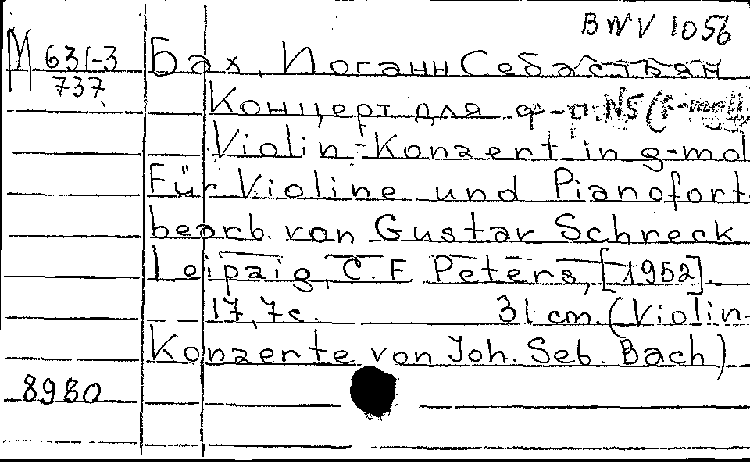 BWV 1056
М 631-3 Бах, Иоганн Себастьян
737
Концерт для ф-п. N5 (f-moll)
Violin-Konzert in g-mol
Für Violine und Pianofort
bearb. von Gustav Schreck
Leipzig, C.F. Peters, [1952].
17, 7c. 31 cm. (Violin-
Konzerte von Joh. Seb. Bach)
8980